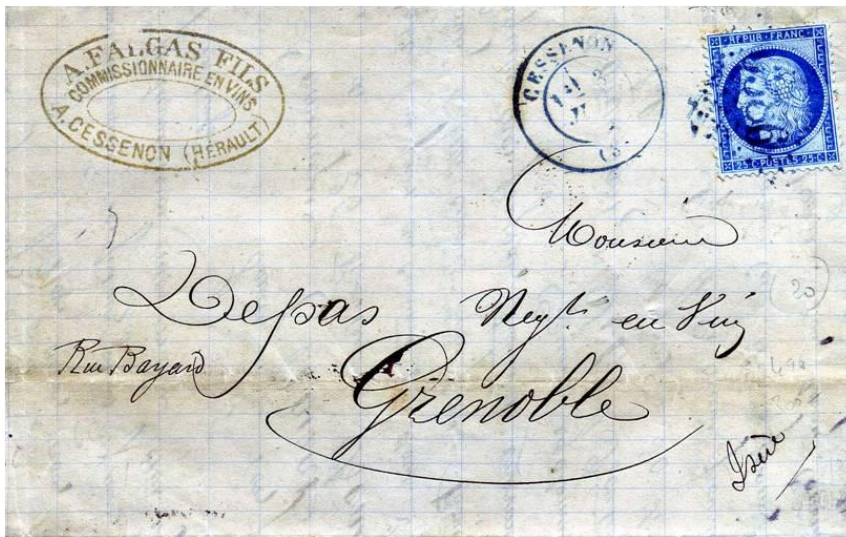 A. FALGAS FILS
COMMISSIONNAIRE EN VINS
A. CESSENON (HÉRAULT)
CESSENON
REPUB·FRANC
25·C·POSTES·25·C
Monsieur
Depas Negt en Vin
Rue Bayard
Grenoble
Isère
20